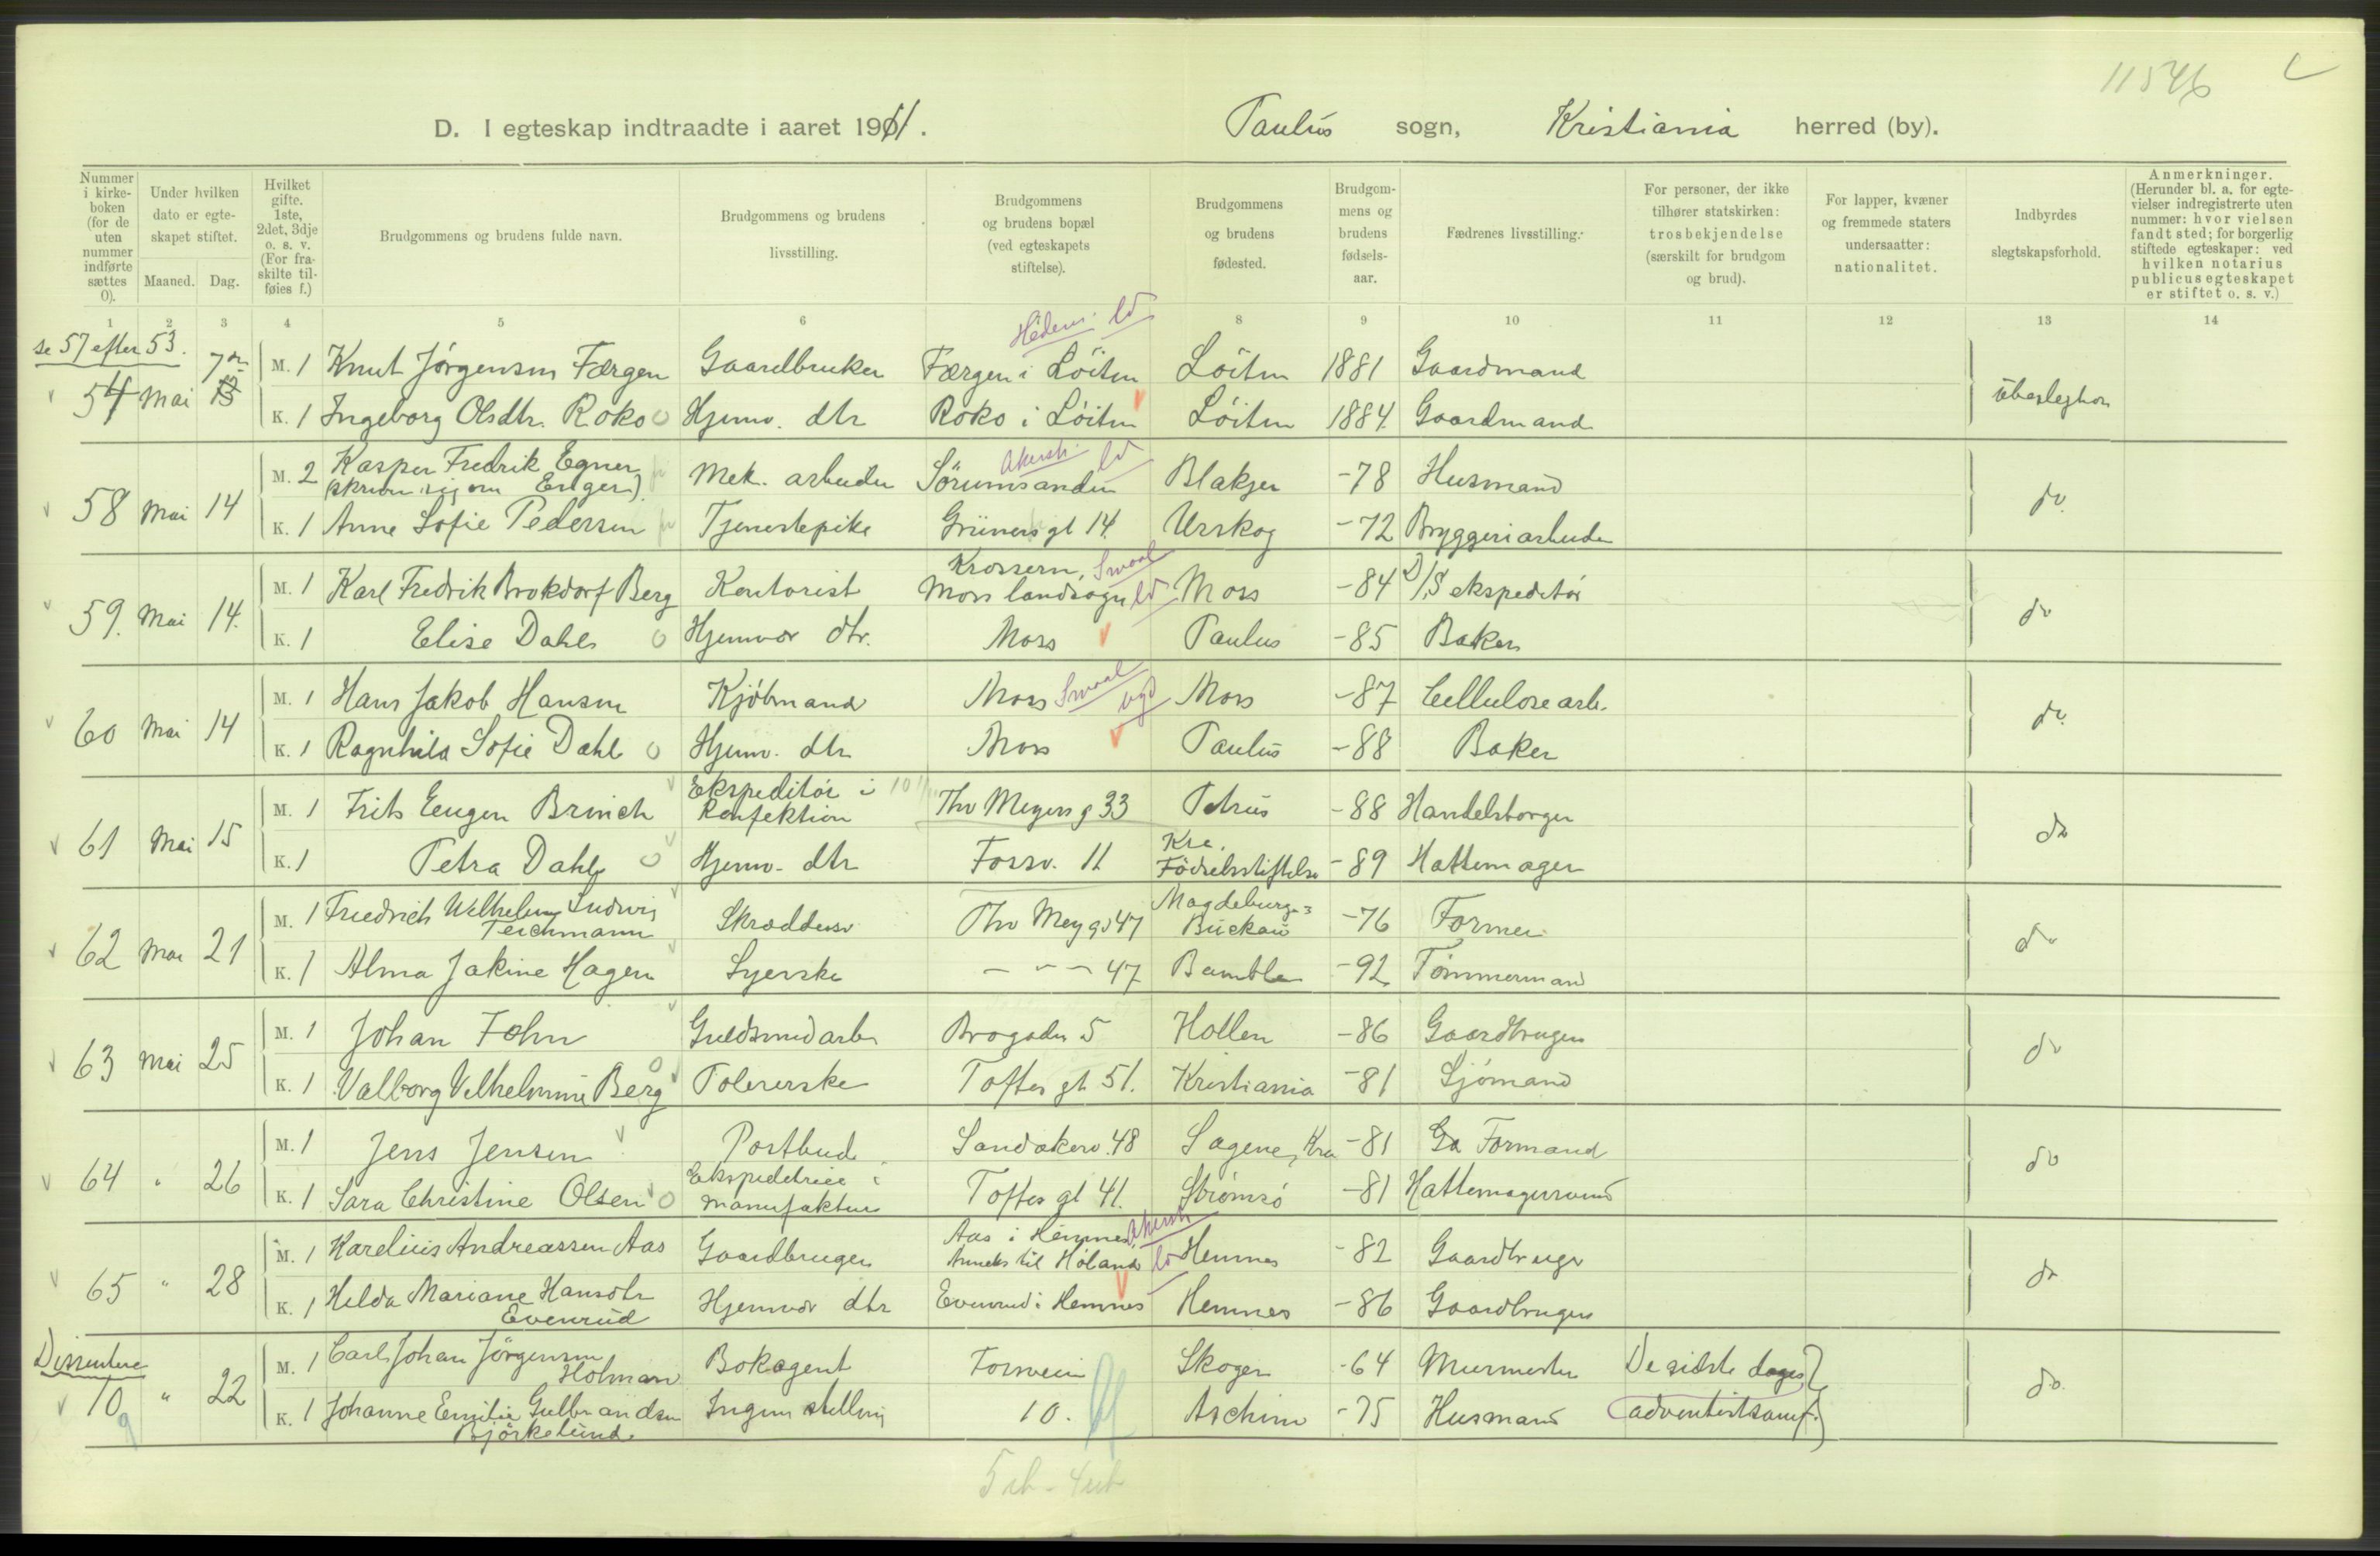 11546
D. I egteskap indtraadte i aaret 1911.
Paulus sogn, Kristiania herred (by).
Nummer i kirkeboken (for de uten nummer indførte sættes 0).
Under hvilken dato er egteskapet stiftet.
Maaned. Dag.
Hvilket gifte. 1ste, 2det, 3dje o. s. v. (For fraskilte tilføies f.)
Brudgommens og brudens fulde navn.
Brudgommens og brudens livsstilling.
Brudgommens og brudens bopæl (ved egteskapets stiftelse).
Brudgommens og brudens fødested.
Brudgommens og brudens fødselsaar.
Fædrenes livsstilling.
For personer, der ikke tilhører statskirken: trosbekjendelse (særskilt for brudgom og brud).
For lapper, kvæner og fremmede staters undersaatter: nationalitet.
Indbyrdes slegtskapsforhold.
Anmerkninger. (Herunder bl. a. for egtevielser indregistrerte uten nummer: hvor vielsen fandt sted; for borgerlig stiftede egteskaper: ved hvilken notarius publicus egteskapet er stiftet o. s. v.)
1 2 3 4 5 6 8 9 10 11 12 13 14
se 57 efter 53.
Hedem. ld
54 Mai 7 M. 1 Knut Jørgensen Færgen Gaardbruker Færgen i Löiten Löiten 1881 Gaardmand
K. 1 Ingeborg Olsdtr. Roko Hjemv. dtr Roko i Löiten Löiten 1884 Gaardmand ubeslegtet
58 Mai 14 M. 2 Kasper Fredrik Egner (skriver sig om Enger) Mek. arbeider Sörumsanden Akersh ld Blakjer -78 Husmand do
K. 1 Anne Sofie Pedersen Tjenestepike Grüners gt 14. Urskog -72 Bryggeriarbeider
59. Mai 14. M. 1 Karl Fredrik Brokdorf Berg Kontorist Krossern, Moss landsogn Smaal ld Moss -84 D/S ekspeditör do
K. 1 Elise Dahl Hjemvær dtr. Moss Paulus -85 Baker
60 Mai 14 M. 1 Hans Jakob Hansen Kjöbmand Moss Smaal Moss -87 Cellulosearb. do
K. 1 Ragnhild Sofie Dahl Hjemv. dtr Moss Paulus -88 Baker
61 Mai 15 M. 1 Frits Eugen Brinch Ekspeditör i Konfektion Thv Meyers g 33 Petrus -88 Handelsborger do
K. 1 Petra Dahl Hjemv. dtr Fossv. 11 Kra. Födselsstiftelse -89 Hattemager
62 Mai 21 M. 1 Friedrich Wilhelm Ludwig Teichmann Skrædder Thv Mey g 47 Magdeburg= Buckau -76 Former do
K. 1 Alma Jakine Hagen Syerske - - - 47 Bamble -92 Tömmermand
63 Mai 25 M. 1 Johan Fohn Guldsmedarb Brogaden 5 Hollen -86 Gaardbruger do
K. 1 Valborg Vilhelmine Berg Polererske Toftes gt 51. Kristiania -81 Sjömand
64 " 26 M. 1 Jens Jensen Postbud Sandakerv. 48 Sagene, Kra -81 Formand do
K. 1 Sara Christine Olsen Ekspeditrice i manufaktur Toftes gt 41. Strömsö -81 Hattemagersvend
65 " 28 M. 1 Karelius Andreassen Aas Gaardbruger Aas i Hemnes, Anneks til Høland Akersh ld Hemnes -82 Gaardbruger do
K. 1 Helda Mariane Hansdtr Evenrud Hjemvær dtr Evenrud i Hemnes Hemnes -86 Gaardbruger
Dissentere
10 " 22 M. 1 Carl Johan Jörgensen Holman Bokagent Fossveien Skoger -64 Murmester De sidste dages do
9 K. 1 Johanne Emilie Gulbrandsen Björkelund Ingen stilling 10. Aschim -75 Husmand (adventistsamf.)